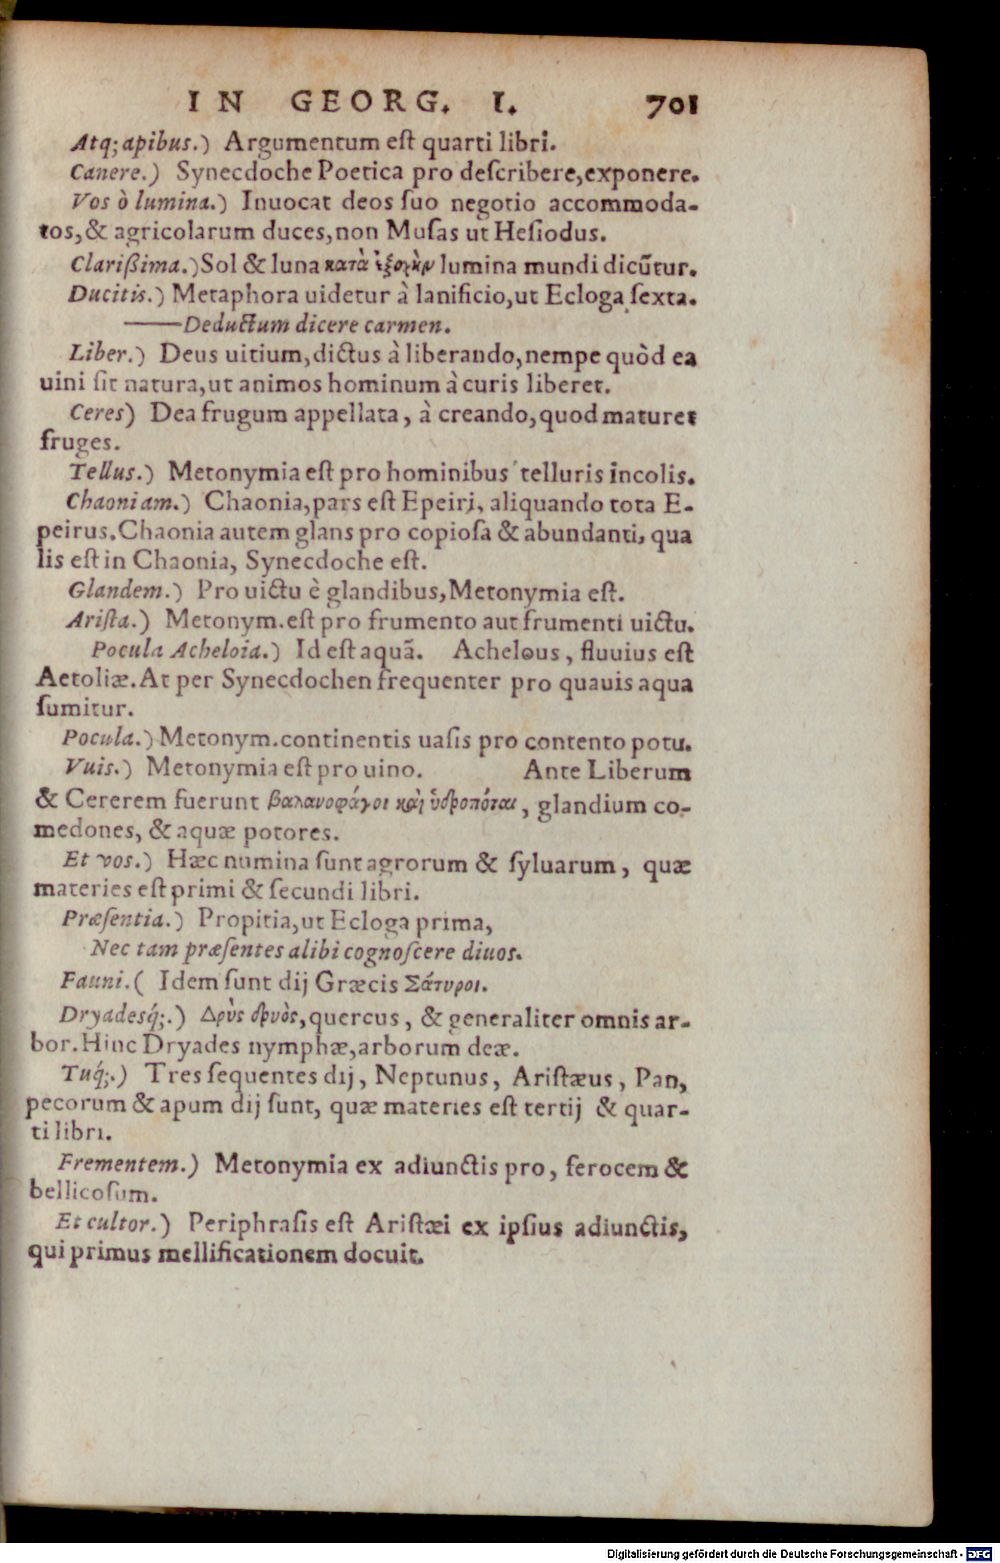 IN GEORG. I. 701
Atq; apibus.) Argumentum eſt quarti libri.
Canere.) Synecdoche Poetica pro deſcribere, exponere.
Vos ò lumina.) Inuocat deos ſuo negotio accommoda-
tos, & agricolarum duces, non Muſas ut Heſiodus.
Clarißima.) Sol & luna κατὰ ἐξοχὴν lumina mundi dicūtur.
Ducitis.) Metaphora uidetur à lanificio, ut Ecloga ſexta.
——Deductum dicere carmen.
Liber.) Deus uitium, dictus à liberando, nempe quòd ea
uini ſit natura, ut animos hominum à curis liberet.
Ceres) Dea frugum appellata, à creando, quod maturet
fruges.
Tellus.) Metonymia eſt pro hominibus telluris incolis.
Chaoniam.) Chaonia, pars eſt Epeiri, aliquando tota E-
peirus. Chaonia autem glans pro copioſa & abundanti, qua
lis eſt in Chaonia, Synecdoche eſt.
Glandem.) Pro uictu è glandibus, Metonymia eſt.
Ariſta.) Metonym. eſt pro frumento aut frumenti uictu.
Pocula Acheloia.) Id eſt aquã. Achelous, fluuius eſt
Aetoliæ. At per Synecdochen frequenter pro quauis aqua
ſumitur.
Pocula.) Metonym. continentis uaſis pro contento potu.
Vuis.) Metonymia eſt pro uino. Ante Liberum
& Cererem fuerunt βαλανοφάγοι καὶ ὑδροπόται, glandium co-
medones, & aquæ potores.
Et vos.) Hæc numina ſunt agrorum & ſyluarum, quæ
materies eſt primi & ſecundi libri.
Præſentia.) Propitia, ut Ecloga prima,
Nec tam præſentes alibi cognoſcere diuos.
Fauni.( Idem ſunt dij Græcis Σάτυροι.
Dryadesq́;.) Δρῦς δρυὸς, quercus, & generaliter omnis ar-
bor. Hinc Dryades nymphæ, arborum deæ.
Tuq́;.) Tres ſequentes dij, Neptunus, Ariſtæus, Pan,
pecorum & apum dij ſunt, quæ materies eſt tertij & quar-
ti libri.
Frementem.) Metonymia ex adiunctis pro, ferocem &
bellicoſum.
Et cultor.) Periphraſis eſt Ariſtæi ex ipſius adiunctis,
qui primus mellificationem docuit.
Digitalisierung gefördert durch die Deutsche Forschungsgemeinschaft - DFG